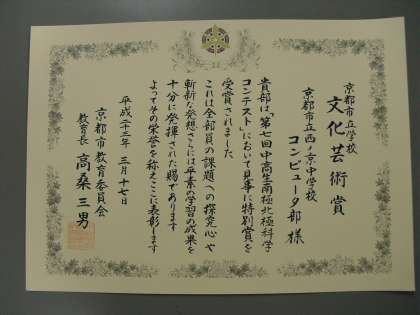 京都市立学校
文化芸術賞
京都市立西ノ京中学校
コンピュータ部 様
貴部は、「第七回中高生南極北極科学
コンテスト」において見事に特別賞を
受賞されました
これは全部員の課題への探究心や
斬新な発想さらには平素の学習の成果を
十分に発揮された賜であります
よってその栄誉を称えここに表彰します
平成二十三年 三月十七日
京都市教育委員会
教育長 高桑三男